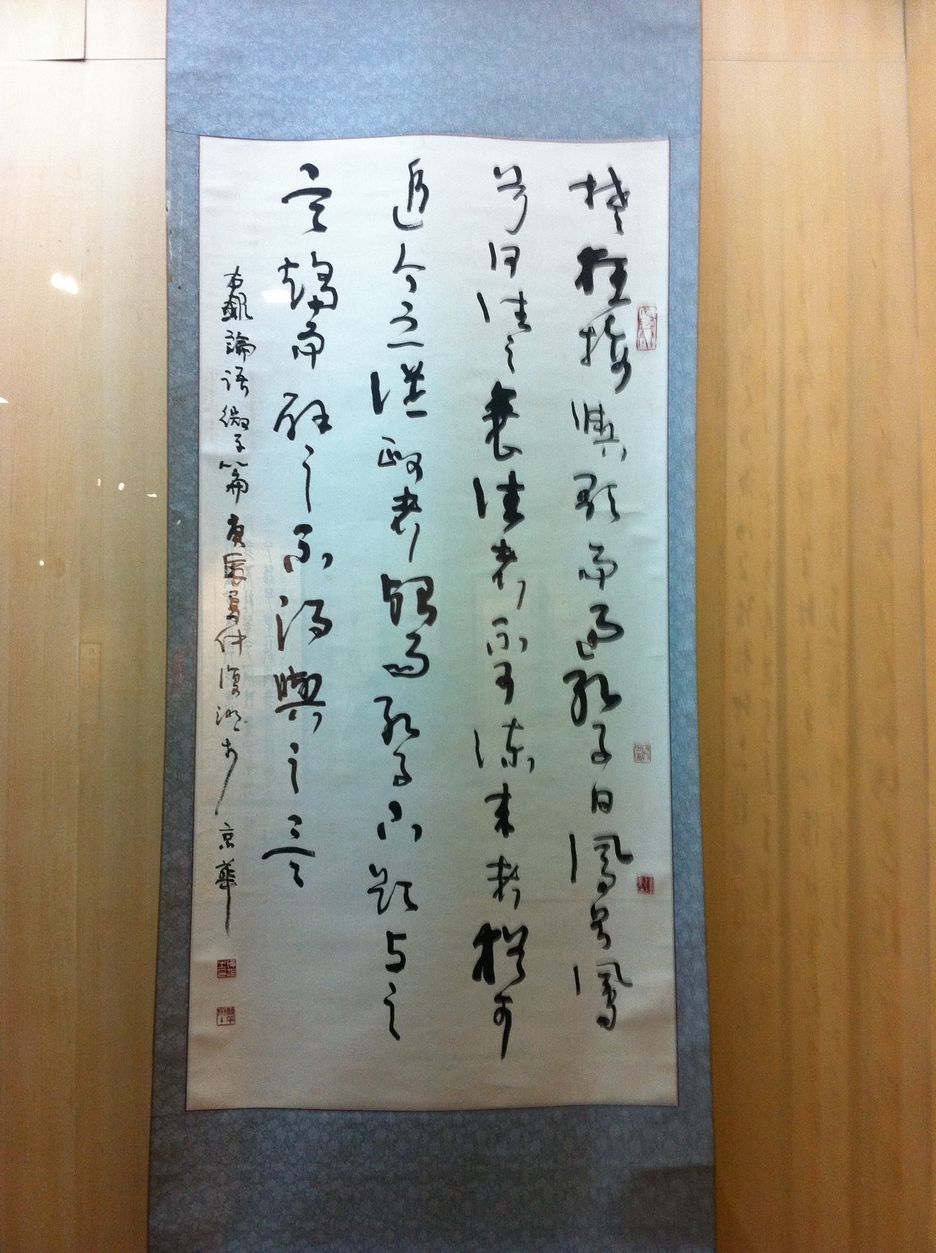 楚狂接輿歌而過孔子曰鳳兮鳳
兮何德之衰往者不可諫來者猶可
追今之從政者殆而孔子下欲与之
言趨而辟之不得與之言
右錄論語微子篇庚辰夏仲京華